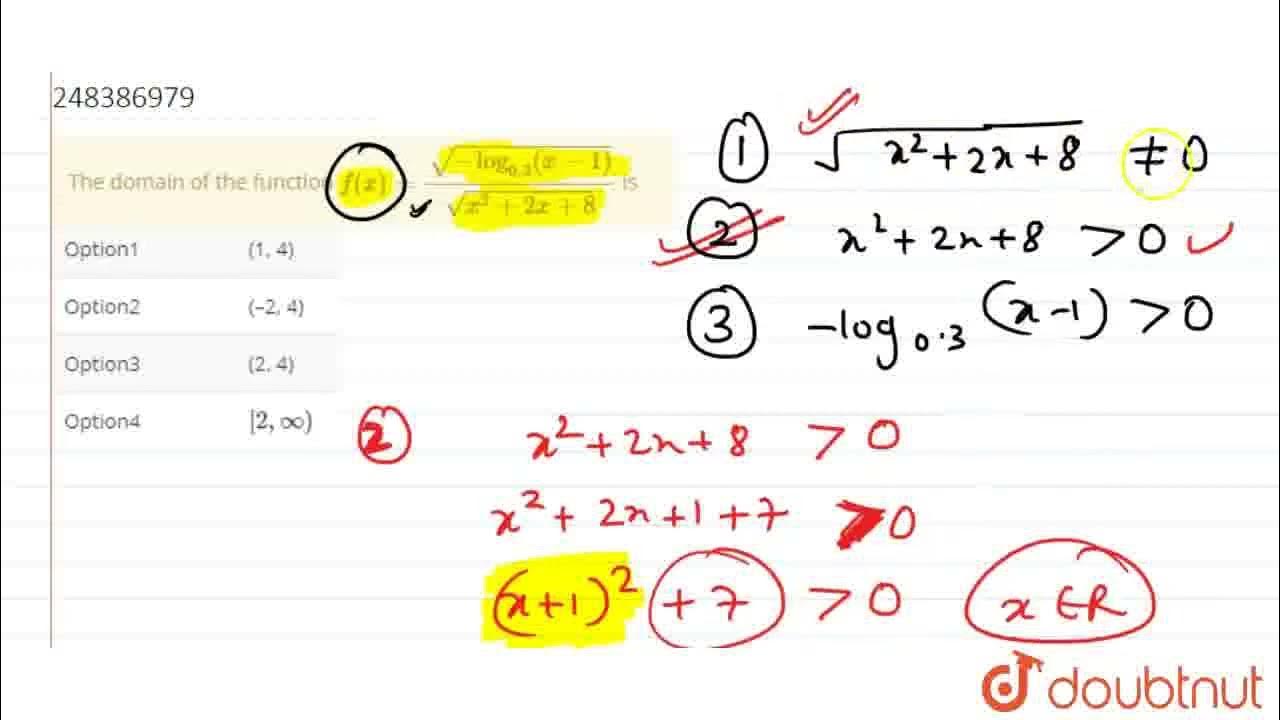 248386979
The domain of the function f(x) = √(-log₀.₃(x - 1)) / √(x² + 2x + 8) is
Option1 (1, 4)
Option2 (–2, 4)
Option3 (2, 4)
Option4 [2, ∞)
① √(x²+2x+8) ≠ 0
② x²+2x+8 > 0
③ -log₀.₃(x-1) > 0
② x²+2x+8 > 0
x²+2x+1+7 > 0
(x+1)²+7 > 0 x∈R
doubtnut